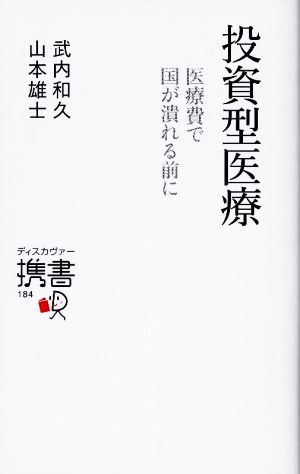 投資型医療
医療費で
国が潰れる前に
武内和久
山本雄士
ディスカヴァー
携書
184